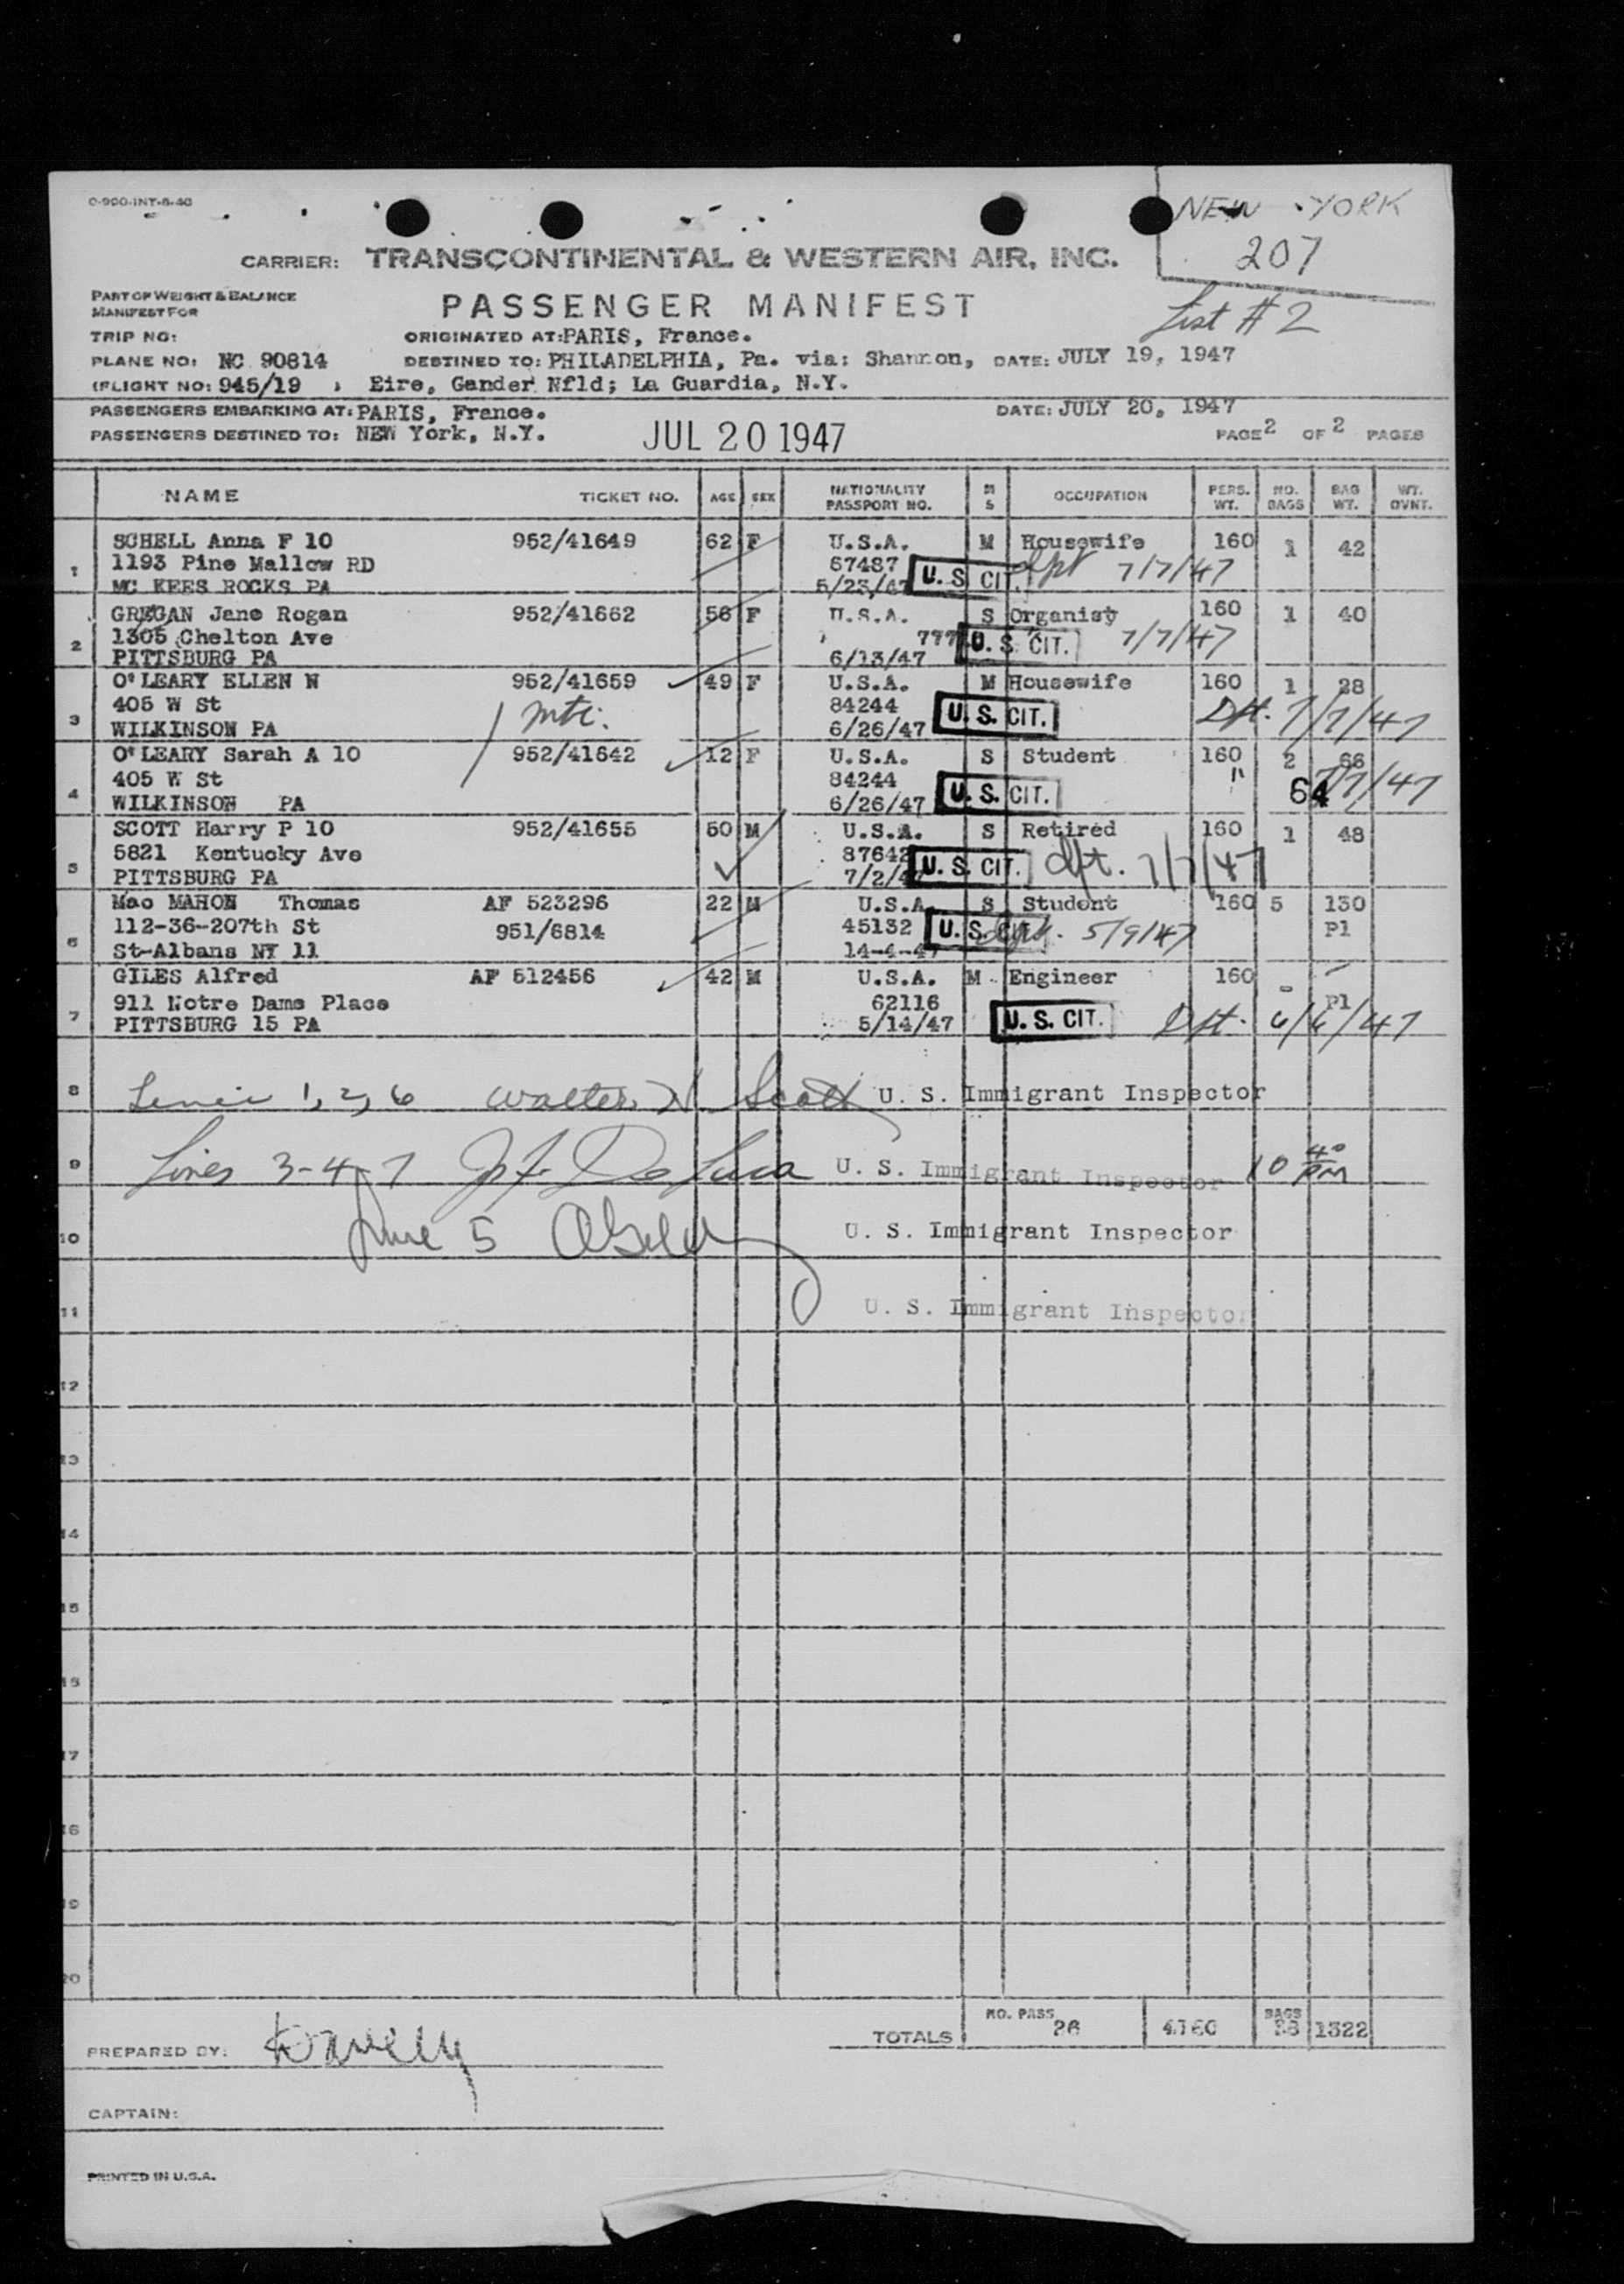 0-900-INT-5-46
NEW YORK
207
CARRIER: TRANSCONTINENTAL & WESTERN AIR, INC.
PART OF WEIGHT & BALANCE
MANIFEST FOR
PASSENGER MANIFEST
List #2
TRIP NO: ORIGINATED AT: PARIS, France.
PLANE NO: NC 90814 DESTINED TO: PHILADELPHIA, Pa. via: Shannon, DATE: JULY 19, 1947
FLIGHT NO: 945/19 , Eire, Gander Nfld; La Guardia, N.Y.
PASSENGERS EMBARKING AT: PARIS, France. DATE: JULY 20, 1947
PASSENGERS DESTINED TO: NEW York, N.Y. JUL 20 1947 PAGE 2 OF 2 PAGES
NAME TICKET NO. AGE SEX NATIONALITY PASSPORT NO. M S OCCUPATION PERS. WT. NO. BAGS BAG WT. WT. OVNT.
SCHELL Anna F 10 952/41649 62 F U.S.A. M Housewife 160 1 42
1193 Pine Mallow RD 57487 7/7/47
1 MC KEES ROCKS PA 5/23/47 U.S. CIT.
GREGAN Jane Rogan 952/41662 56 F U.S.A. S Organist 160 1 40
1305 Chelton Ave 777 U.S. CIT. 7/7/47
2 PITTSBURG PA 6/13/47
O'LEARY ELLEN N 952/41659 49 F U.S.A. M Housewife 160 1 28
405 W St 84244 U.S. CIT. Dpt. 7/7/47
3 WILKINSON PA 6/26/47
O'LEARY Sarah A 10 952/41642 12 F U.S.A. S Student 160 2 66
405 W St 84244 " 7/7/47
4 WILKINSON PA 6/26/47 U.S. CIT. 64
SCOTT Harry P 10 952/41655 50 M U.S.A. S Retired 160 1 48
5821 Kentucky Ave 87642 U.S. CIT. dpt. 7/7/47
5 PITTSBURG PA 7/2/47
Mac MAHON Thomas AF 523296 22 M U.S.A. S Student 160 5 130
112-36-207th St 951/6814 45132 U.S. CIT. 5/9/47 Pl
6 St-Albans NY 11 14-4-47
GILES Alfred AF 512456 42 M U.S.A. M Engineer 160 - -
911 Notre Dame Place 62116 Pl
7 PITTSBURG 15 PA 5/14/47 U.S. CIT. Dpt. 6/6/47
8 1, 2, 6 Walter N Scott U. S. Immigrant Inspector
9 Lines 3-4-7 De Luca U. S. Immigrant Inspector 10 40 PM
10 Line 5 U. S. Immigrant Inspector
11 U. S. Immigrant Inspector
12
13
14
15
16
17
18
19
20
TOTALS NO. PASS 26 4160 BAGS 1322
PREPARED BY:
CAPTAIN:
PRINTED IN U.S.A.